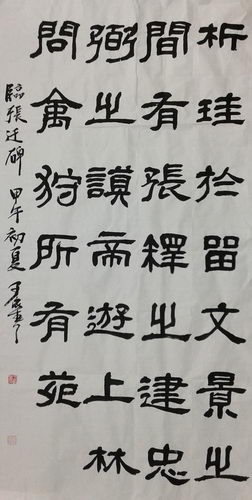 析珪於留文景之
間有張釋之建忠
弼之謨帝遊上林
問禽狩所有苑
臨張迁碑 甲午初夏